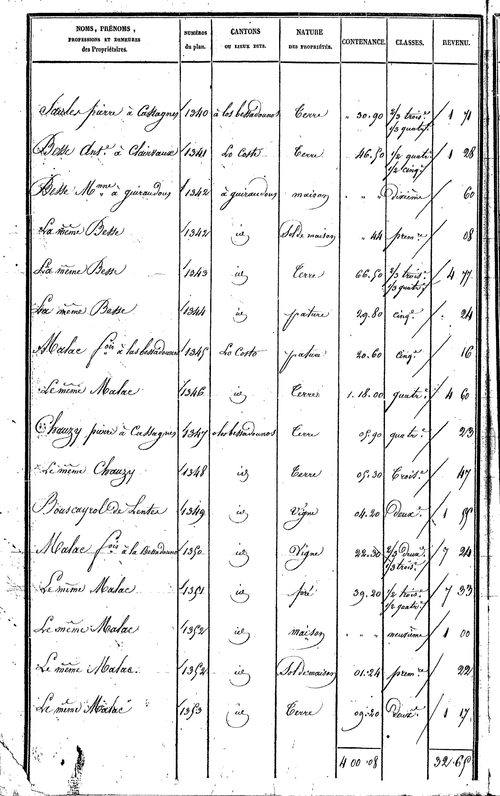 NOMS, PRÉNOMS, PROFESSIONS ET DEMEURES des Propriétaires. NUMÉROS du plan. CANTONS OU LIEUX DITS. NATURE DES PROPRIÉTÉS. CONTENANCE. CLASSES. REVENU.
pierre à Castagnes 1340 à las bessadounos Terre " 30.90 2/3 trois.e 1/3 quatr.e 1 71
Besse Ant.e à Clairvaux 1341 Lo Costo Terre 46.50 1/2 quatr. 1/2 cinq.e 1 28
Besse M.nne à guiraudous 1342 à guiraudous maison " " Dixième 60
La même Besse 1342 id Sol de maison " 44 prem.re 08
La même Besse 1343 id Terre 66.50 2/3 trois.e 1/3 quatr.e 4 77
La même Besse 1344 id pature 29.80 cinq.e 24
Malac f.ois à las bessadounos 1345 Lo Costo pature 20.60 cinq.e 16
Le même Malac 1346 id Terre 1.18.00 quatr.e 4 60
Chauzy pierre à Castagnes 1347 à las bessadounos Terre 05.90 quatr.e 23
Le même Chauzy 1348 id Terre 05.30 Trois.e 47
Bouscayrol de Lentes 1349 id Vigne 04.20 Deux.e 1 55
Malac f.ois à la Bessadouno 1350 id Vigne 22.30 2/3 Deux.e 1/3 trois.e 7 24
Le même Malac 1351 id pré 39.20 1/2 trois.e 1/2 quatr.e 7 33
Le même Malac 1352 id maison " " " neuvième 1 00
Le même Malac 1352 id Sol de maison 01.24 prem.re 22
Le même Malac 1353 id Terre 09.20 Deux.e 1 17
4 00.08 32.65